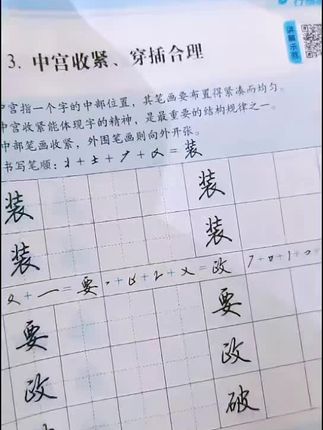 讲解示范
3. 中宫收紧、穿插合理
中宫指一个字的中部位置，其笔画要布置得紧凑而均匀。
中宫收紧能体现字的精神，是最重要的结构规律之一。
中部笔画收紧，外围笔画则向外开张。
书写笔顺：
= 装
装 装
装 装
= 要 = 政
要 要
政 政
破